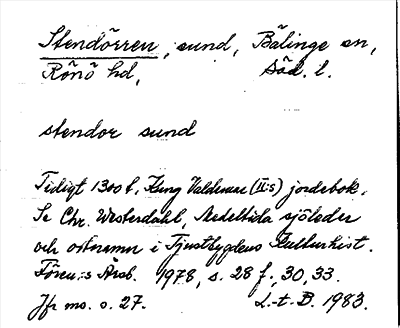 Stendörren, sund, Bälinge sn,
Rönö hd, Söd. l.
stendor sund
Tidigt 1300 t. Kung Valdemar (II:s) jordebok.
Se Chr. Westerdahl, Medeltida sjöleder
och ortnamn i Tjustbygdens Kulturhist.
Fören:s Årsb. 1978, s. 28 f., 30, 33.
Jfr ms. s. 27. L.-t. B. 1983.